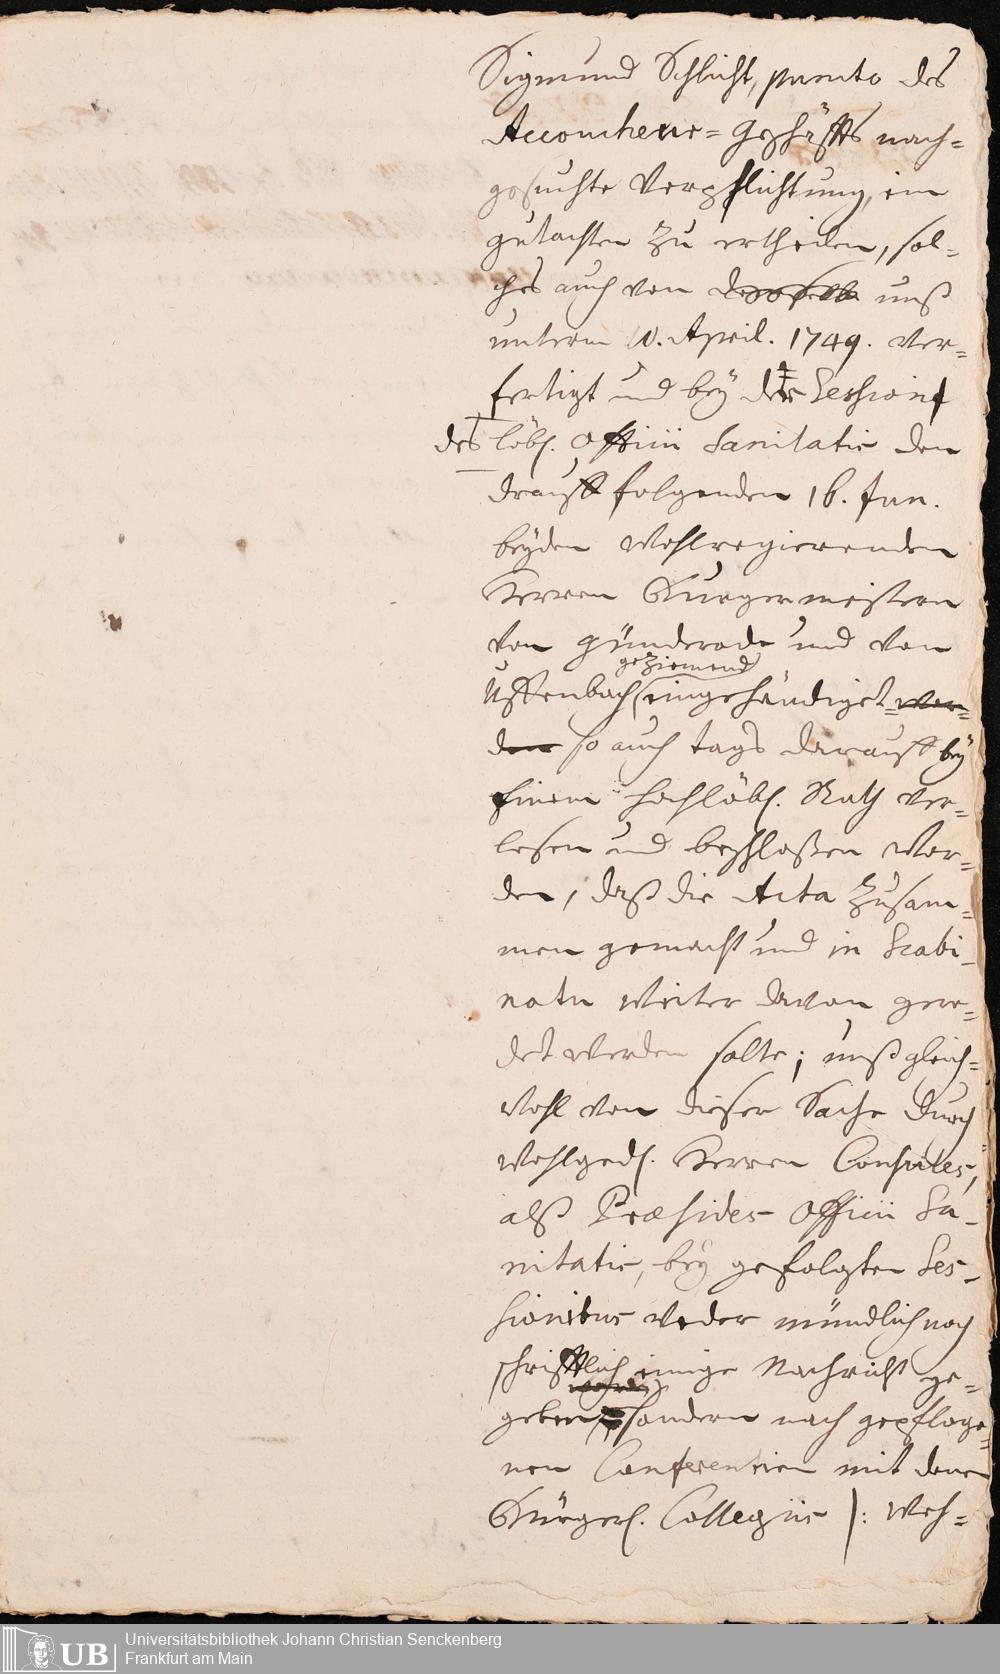 Sigmund Schlicht, puncto des
Accoucheur= Geschäffts nach=
gesuchte Verpflichtung, ein
gutachten zu ertheilen, sol=
ches auch von unß
unterm 10. April. 1749. ver=
fertigt und bey der Session
des löbl. Officii Sanitatis den
drauff folgenden 16. Jun.
beyden Wohlregierenden
Herren Burgermeistern
von Günderode und von
geziemend
Uffenbach eingehändiget wor=
den so auch tags darauff bey
Einem hochlöbl. Rath ver=
lesen und beschloßen wor=
den, daß die Acta zusam=
men gemacht und in Scabi=
natu weiter davon gere=
det werden solte; unß gleich=
wohl von dieser Sache durch
Wohlged. Herren Consules,
alß Præsides Officii Sa=
nitatis, bey gefolgten Ses=
sionibus weder mündlich noch
schrifftlich einige Nachricht ge=
worden
geben, sondern nach gepfloge=
nen Conferentien mit denen
Bürgerl. Collegiis |: Weh=
Universitätsbibliothek Johann Christian Senckenberg
Frankfurt am Main
UB